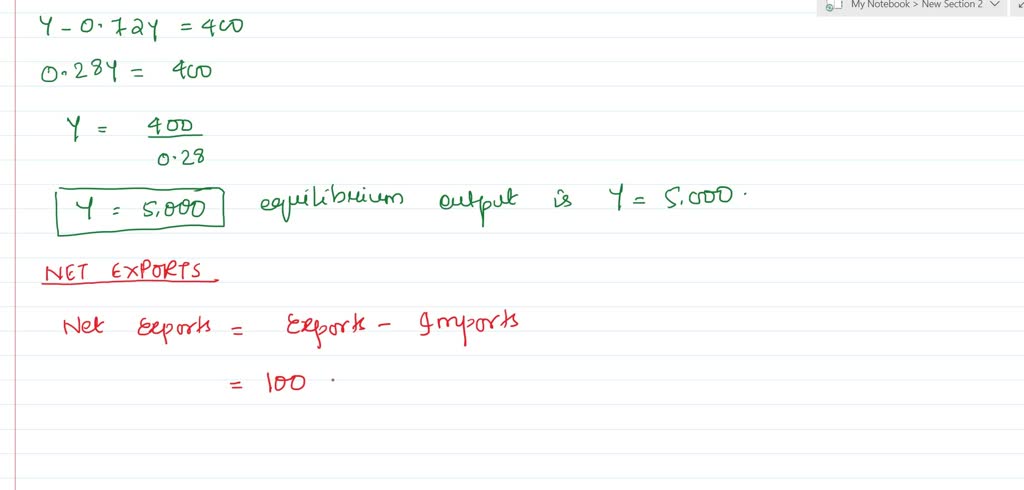 My Notebook > New Section 2
Y - 0.72Y = 400
0.28Y = 400
Y = 400
0.28
Y = 5,000 equilibrium output is Y = 5,000.
NET EXPORTS
Net Exports = Exports - Imports
= 100